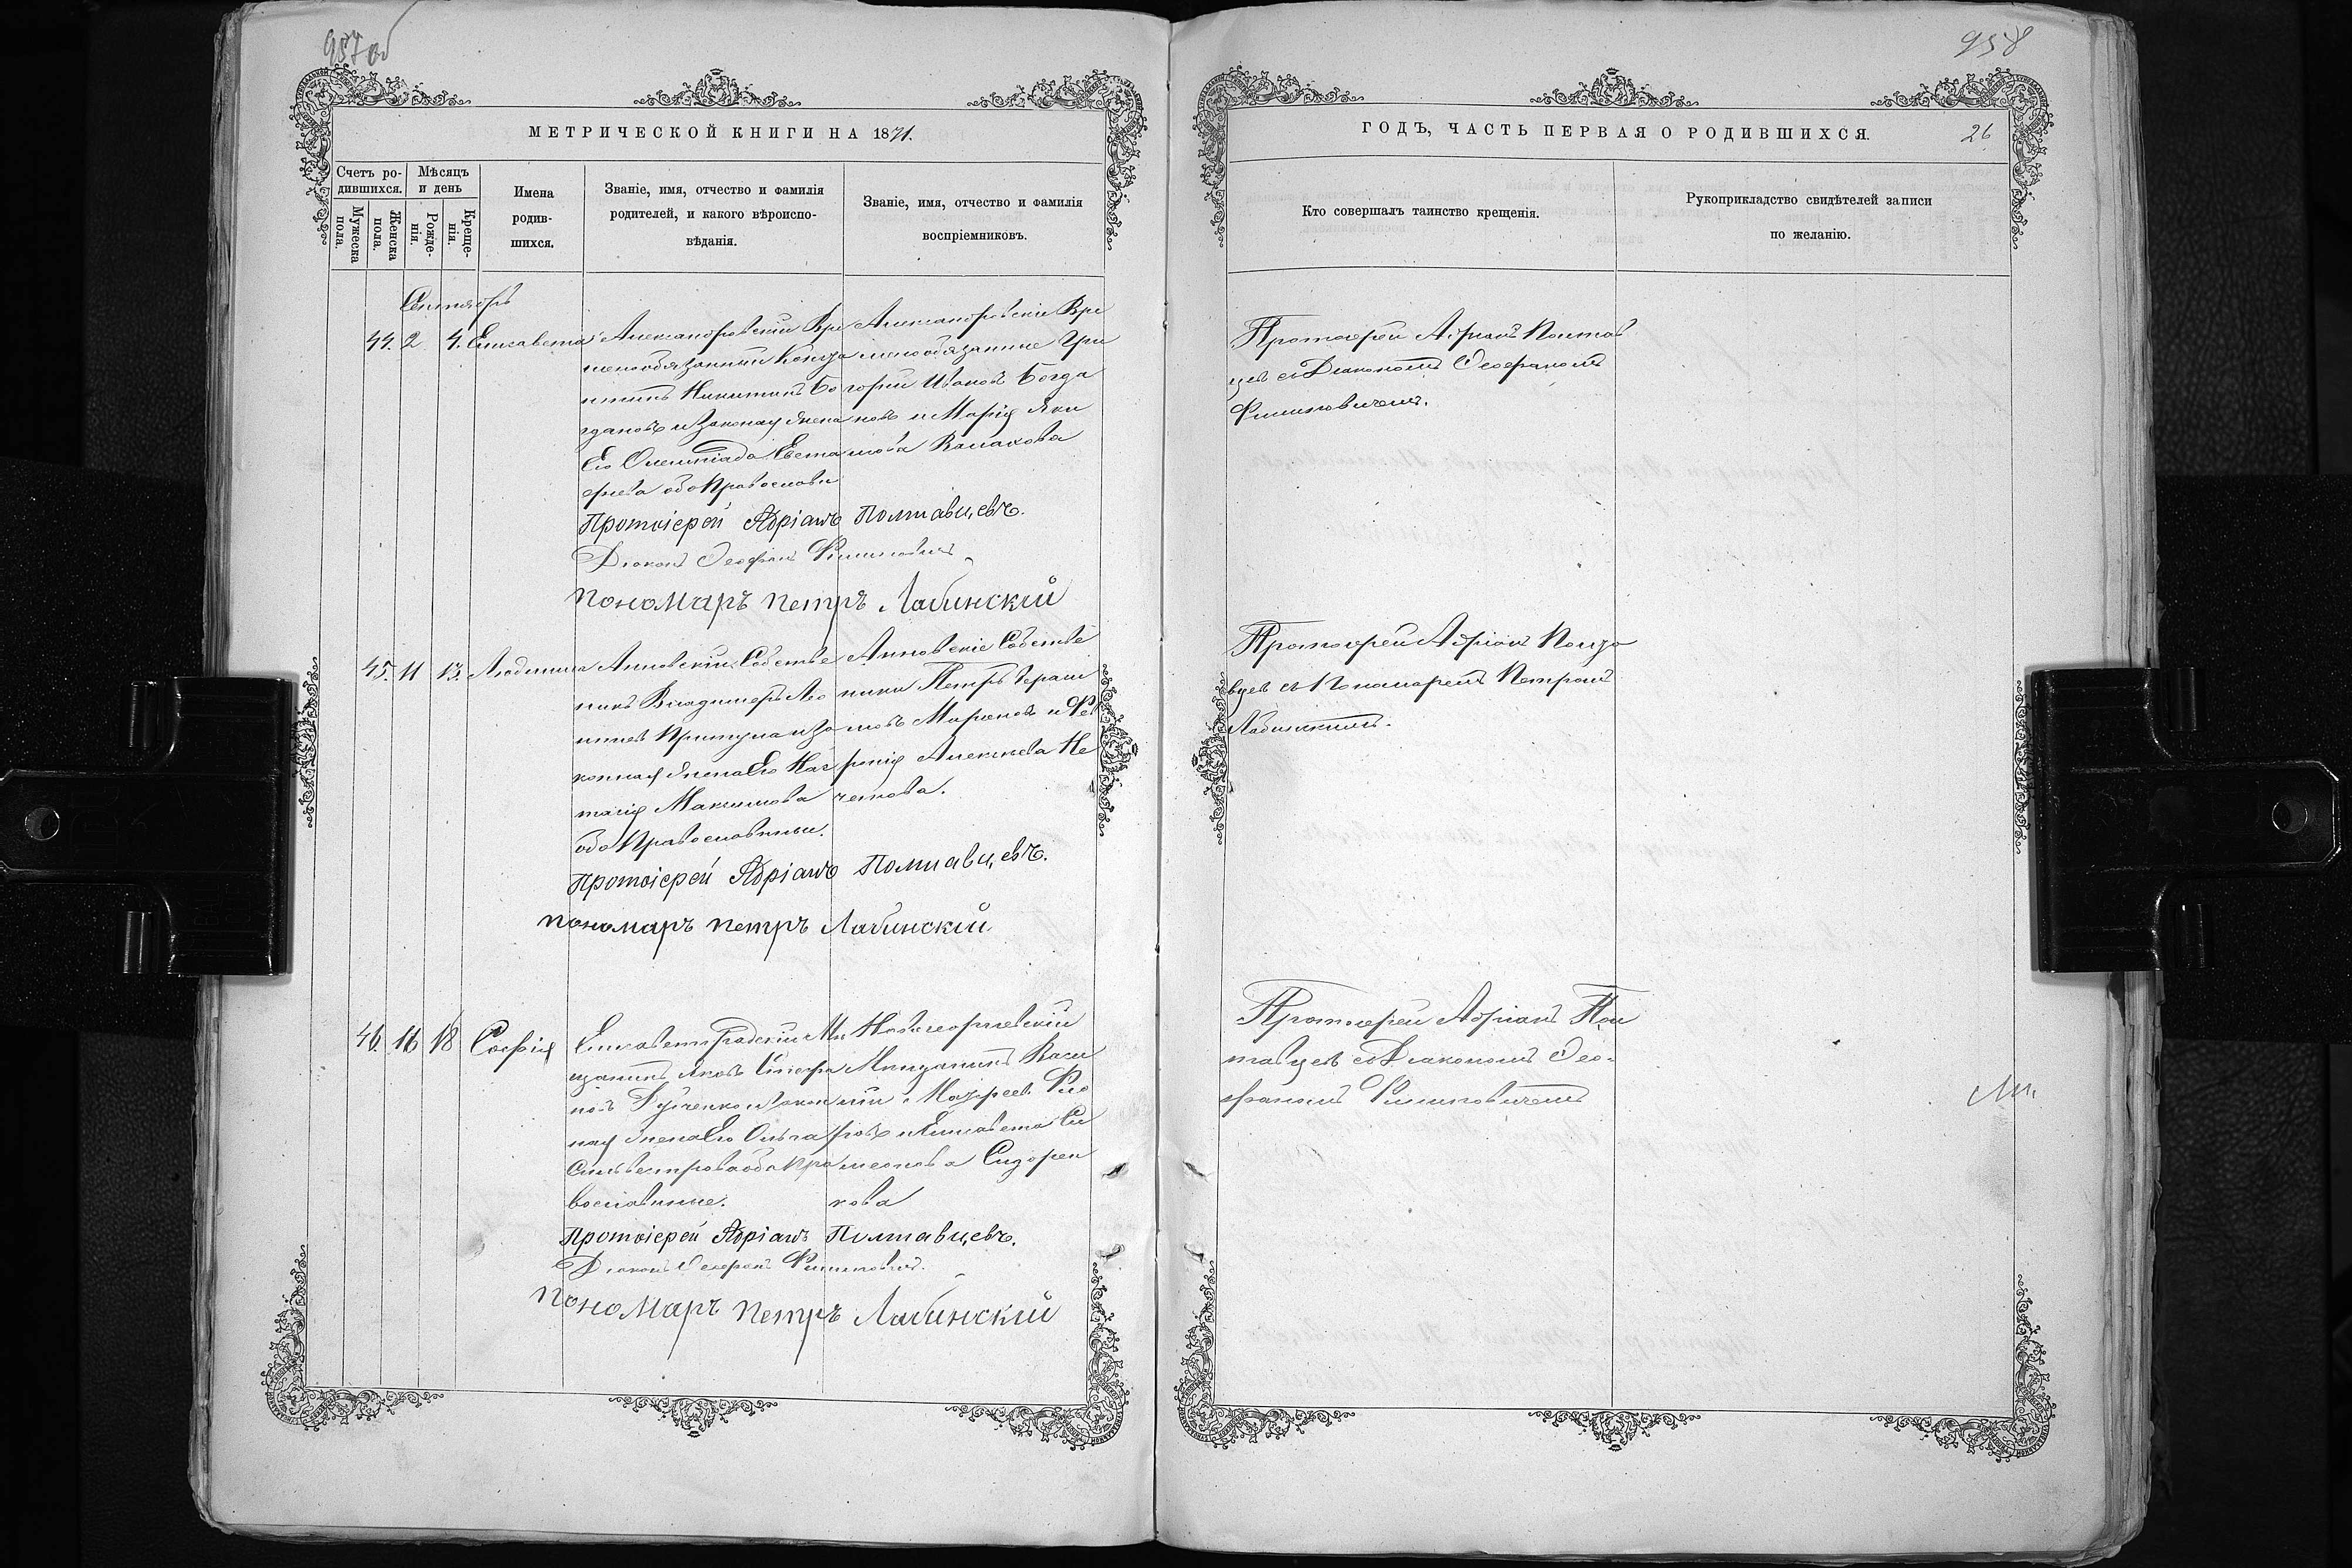 957 об
МЕТРИЧЕСКОЙ КНИГИ НА 1871.
Счетъ ро-
дившихся.
Мужеска пола.
Женска пола.
Мѣсяцъ
и день
Рожде-
нія.
Креще-
нія.
Имена
родив-
шихся.
Званіе, имя, отчество и фамилія
родителей, и какого вѣроиспо-
вѣданія.
Званіе, имя, отчество и фамилія
воспріемниковъ.
Сентябрь
44. 2 4. Елисавета
Александровскій Вре
меннообязанный
Никитинъ Бо
гдановъ и законная жена
Его Олимпіада Евста
фіева оба Православн
Александровскіе Вре
меннообязанные Гри
горій Ивановъ Богда
новъ и Марія Яки
мова
Протоіерей Адріанъ Полтавцевъ.
Діаконъ Ѳеофанъ
пономаръ петръ Лабинскій
45. 11 13. Людмила
Анновскій Собстве
никъ Владимеръ Лео
нтіев Притула и за
конная жена Его На
талія Максимова
оба Православныи.
Анновскіе Собстве
ники Петръ Гераси
мовъ Маріновъ и Фев
ронія Алексѣева Не
четова.
Протоіерей Адріанъ Полтавцевъ.
пономаръ петръ Лабинскій
46. 16 18 Софія
Елисаветградскій Мѣ
щанинъ Яковъ
новъ и закон
ная жена Его Ольга
Сильвестрова оба Пра
вославные.
Новогеоргіевскій
Мѣщанинъ Васи
лій
ровъ и Елисавета Си
меонова Сидорен
кова
Протоіерей Адріанъ Полтавцевъ.
Діаконъ Ѳеофанъ
пономаръ петръ Лабинскій
958
ГОДЪ, ЧАСТЬ ПЕРВАЯ О РОДИВШИХСЯ.
26
Кто совершалъ таинство крещенія.
Рукоприкладство свидѣтелей записи
по желанію.
Протоіерей Адріанъ Полтав
цев съ Діакономъ Ѳеофаномъ
Протоіерей Адріанъ Полта
вцев съ Пономаремъ Петромъ
Лабинскимъ.
Протоіерей Адріанъ Пол
тавцев съ Діакономъ Ѳео-
фаномъ